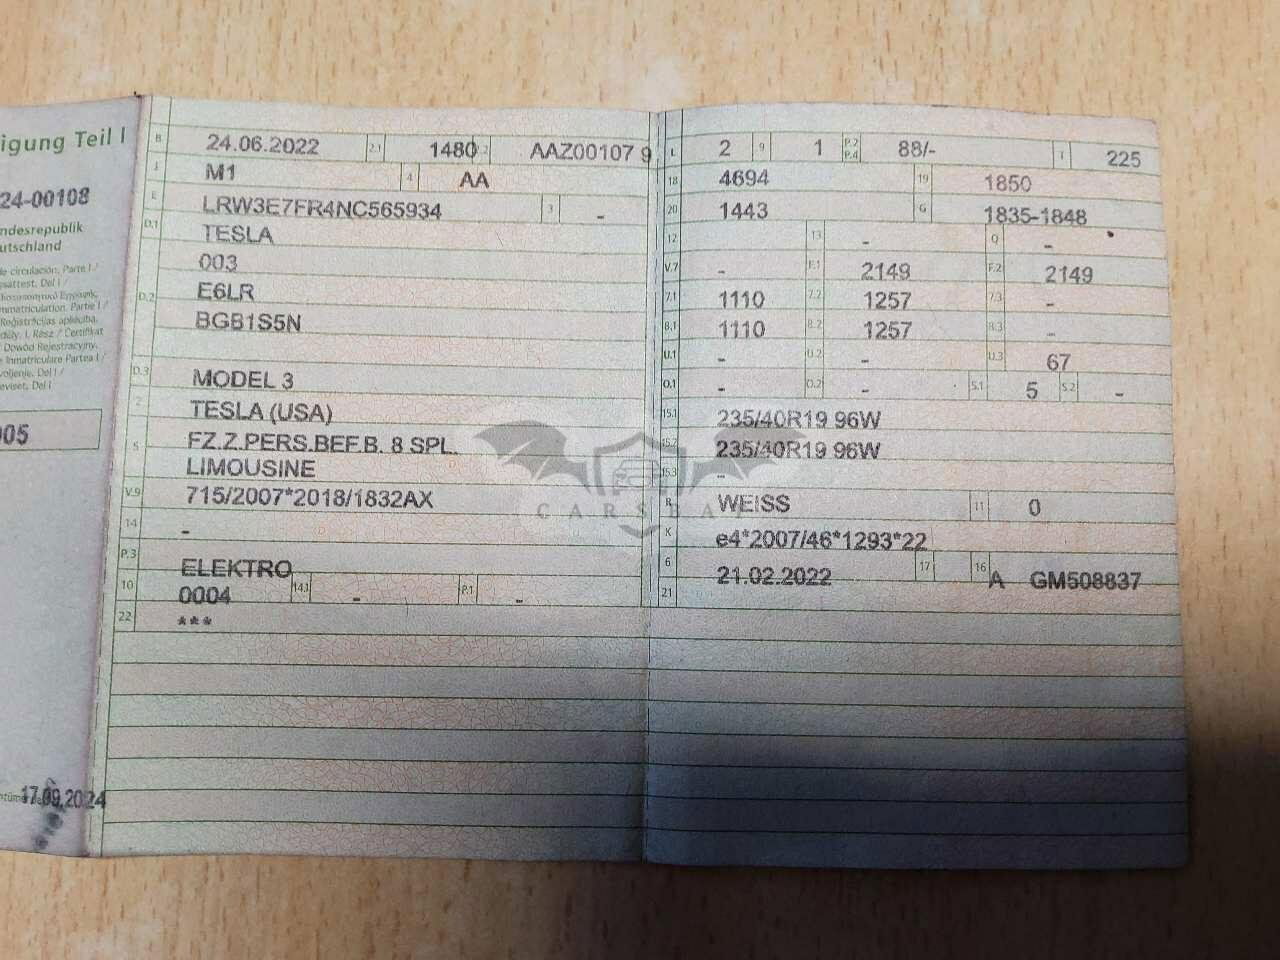 igung Teil I
24-00108
ndesrepublik
utschland
de circulación, Parte I /
Del I /
Parte I /
Reģistrācijas apliecība,
I. Rész / Certifikat
Dowód Rejestracyjny,
Inmatriculare Partea I /
Del I /
Del I
005
17.09.2024
B 24.06.2022 2.1 1480 2.2 AAZ00107 9
J M1 4 AA
E LRW3E7FR4NC565934 3 -
D.1 TESLA
003
D.2 E6LR
BGB1S5N
D.3 MODEL 3
2 TESLA (USA)
5 FZ.Z.PERS.BEF.B. 8 SPL.
LIMOUSINE
V.9 715/2007*2018/1832AX
14 -
P.3 ELEKTRO
10 0004 14.1 - P.1 -
22 ***
L 2 9 1 P.2 P.4 88/- T 225
18 4694 19 1850
20 1443 G 1835-1848
12 13 - Q -
V.7 - F.1 2149 F.2 2149
7.1 1110 7.2 1257 7.3 -
8.1 1110 8.2 1257 8.3 -
U.1 - U.2 - U.3 67
O.1 - O.2 - S.1 5 S.2 -
15.1 235/40R19 96W
15.2 235/40R19 96W
15.3 -
R WEISS 11 0
K e4*2007/46*1293*22
6 21.02.2022 17 16 A GM508837
21
CARSBA